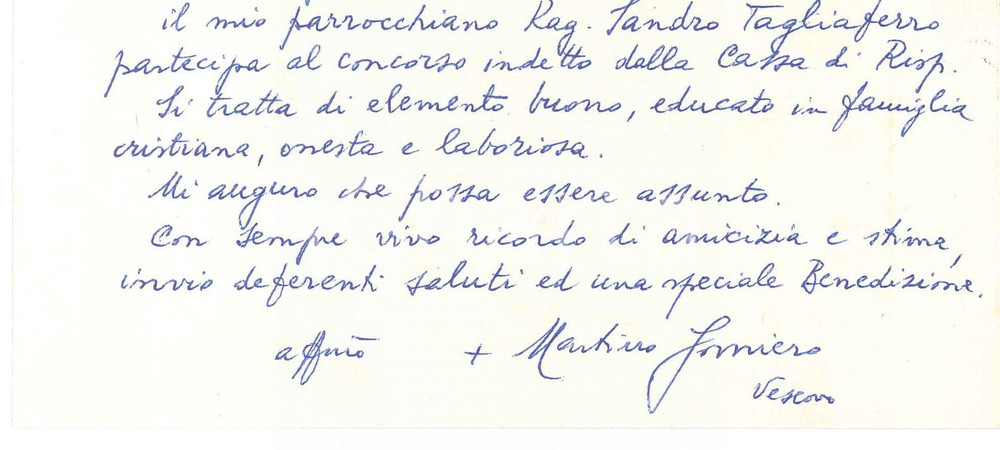 il mio parrocchiano Rag. Sandro Tagliaferro
partecipa al concorso indetto dalla Cassa di Risp.
Si tratta di elemento buono, educato in famiglia
cristiana, onesta e laboriosa.
Mi auguro che possa essere assunto.
Con sempre vivo ricordo di amicizia e stima,
invio deferenti saluti ed una speciale Benedizione.
affmo + Martino Gomiero
Vescovo